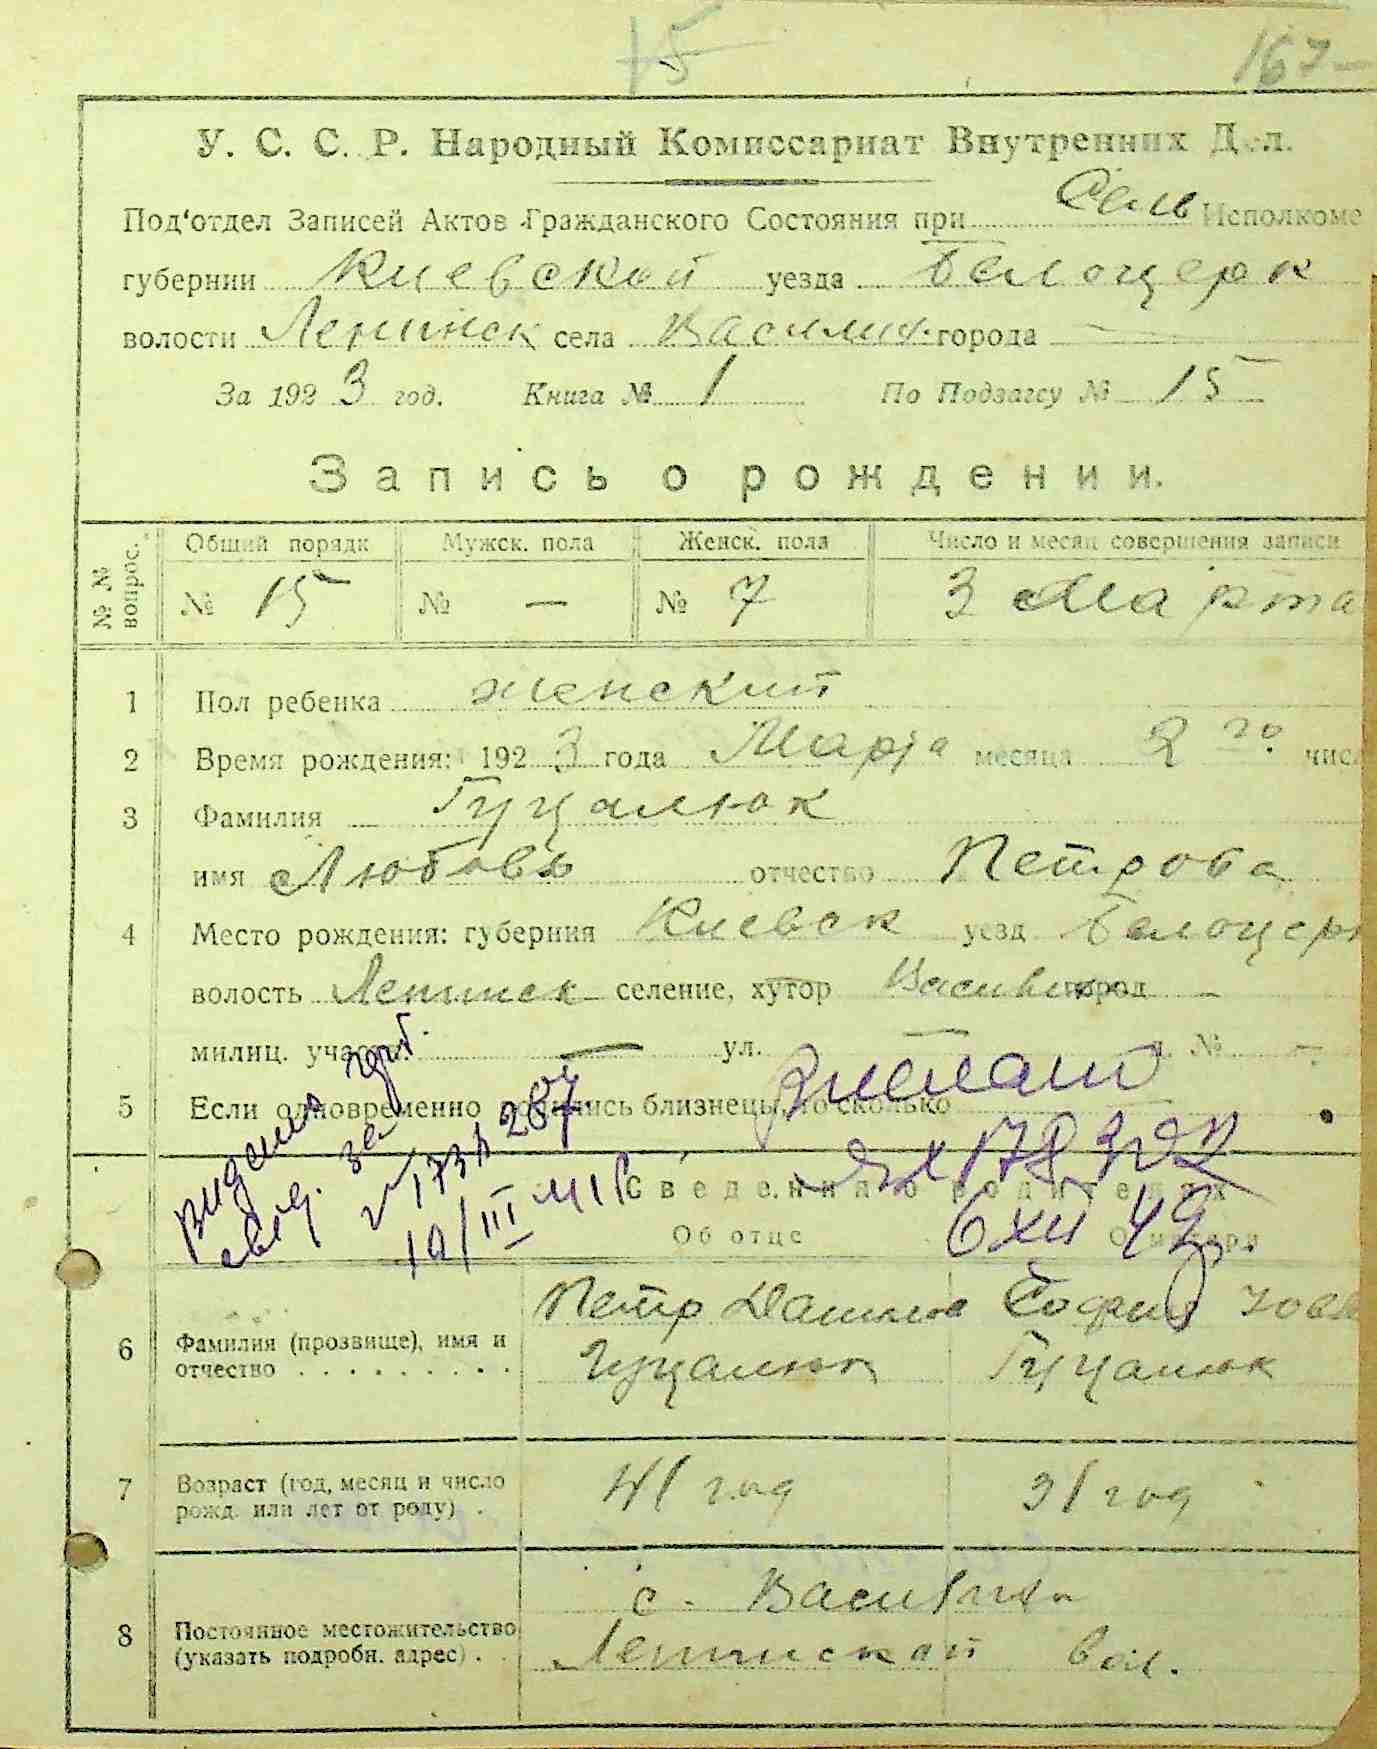 15 167
У. С. С. Р. Народный Комиссариат Внутренних Дел.
Под'отдел Записей Актов Гражданского Состояния при Сель Исполкоме
губернии Киевской уезда Белоцерк
волости Ленинск села города —
За 1923 год. Книга № 1 По Подзагсу № 15
Запись о рождении.
№ № вопрос. Общий порядк Мужск. пола Женск. пола Число и месяц совершения записи
№ 15 № — № 7 3 Марта
1 Пол ребенка женский
2 Время рождения: 1923 года Марта месяца 2 го числ
3 Фамилия Гуцалюк
имя Любовь отчество Петрова
4 Место рождения: губерния Киевск уезд Белоцерк
волость Ленинск селение, хутор город —
милиц. участ — ул. — № —
5 Если одновременно родились близнецы, то сколько
Сведения о родителях
Об отце О матери
6 Фамилия (прозвище), имя и отчество Петр София
Гуцалюк Гуцалюк
7 Возраст (год, месяц и число рожд. или лет от роду) 41 год 31 год
8 Постоянное местожительство (указать подробн. адрес) с.
Ленинской вол.